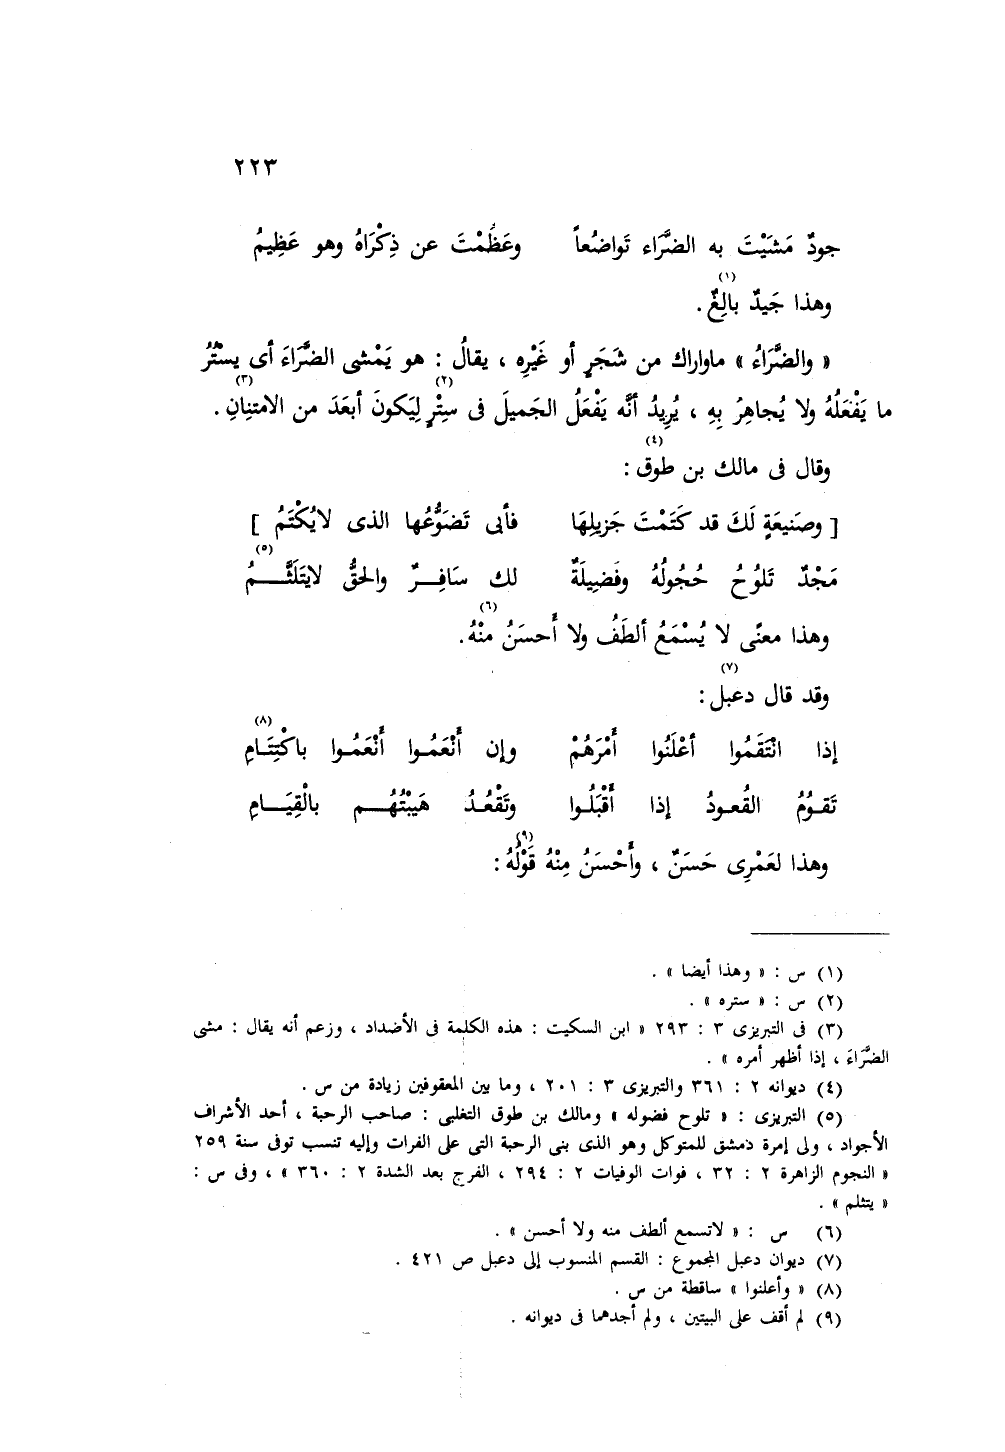 ٢٢٣
جودٌ مَشَيْتَ به الضَّرَاء تَواضُعاً    وعَظُمْتَ عن ذِكْرَاهُ وهو عَظِيمُ
وهذا جَيدٌ بالِغٌ (١) .
« والضَّرَاءُ » ماواراك من شَجَرٍ أو غَيْرِه ، يقالُ : هو يَمْشى الضَّرَاءَ أى يسْتُرُ
ما يَفْعَلُهُ ولا يُجاهِرُ بِهِ ، يُرِيدُ أنَّه يَفْعَلُ الجَميلَ فى سِتْرٍ (٢) لِيَكونَ أبعَدَ من الامتنِانِ (٣) .
وقال فى مالك بن طوق (٤) :
[ وصَنيعَةٍ لَكَ قد كَتَمْتَ جَزيلِهَا    فأبى تَضَوُّعُها الذى لايُكْتَمُ ]
مَجْدٌ تَلوُحُ حُجُولُهُ وفَضِيلَةٌ    لك سَافِـــرٌ والحَقُّ لايتَلَثَّـــمُ (٥)
وهذا معنًى لا يُسْمَعُ ألطَفُ ولا أَحسَنُ منْهُ (٦) .
وقد قال دعبل (٧) :
إذا انْتَقَمُوا أعْلَنُوا أَمْرَهُمْ    وإن أَنْعَمُـوا أَنْعَمُـوا باكْتِتَـامِ (٨)
تَقـوُمُ القُعودُ إذا أَقْبَلُـوا    وتَقْعُـدُ هَيْبَتُهُـــم بالْقِيَـــامِ
وهذا لعَمْرِى حَسَنٌ ، وأَحْسَنُ مِنْهُ قَوْلُهُ (٩) :
(١) س : « وهذا أيضا » .
(٢) س : « ستره » .
(٣) فى التبريزى ٣ : ٢٩٣ « ابن السكيت : هذه الكلمة فى الأضداد ، وزعم أنه يقال : مشى
الضَّرَاءَ ، إذا أظهر أمره » .
(٤) ديوانه ٢ : ٣٦١ والتبريزى ٣ : ٢٠١ ، وما بين المعقوفين زيادة من س .
(٥) التبريزى : « تلوح فضوله » ومالك بن طوق التغلبى : صاحب الرحبة ، أحد الأشراف
الأجواد ، ولى إمرة دمشق للمتوكل وهو الذى بنى الرحبة التى على الفرات وإليه تنسب توفى سنة ٢٥٩
« النجوم الزاهرة ٢ : ٣٢ ، فوات الوفيات ٢ : ٢٩٤ ، الفرج بعد الشدة ٢ : ٣٦٠ » ، وفى س :
« يتثلم » .
(٦) س : « لاتسمع ألطف منه ولا أحسن » .
(٧) ديوان دعبل المجموع : القسم المنسوب إلى دعبل ص ٤٢١ .
(٨) « وأعلنوا » ساقطة من س .
(٩) لم أقف على البيتين ، ولم أجدهما فى ديوانه .